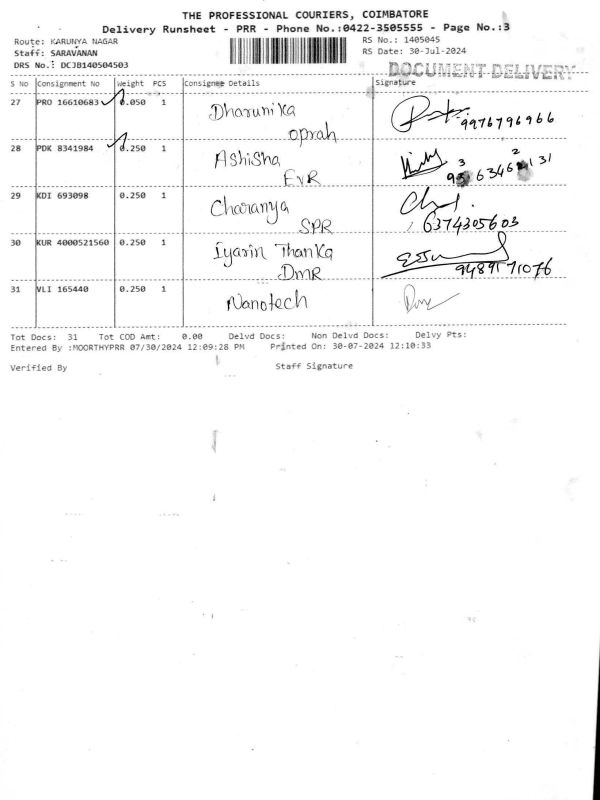 THE PROFESSIONAL COURIERS, COIMBATORE
Delivery Runsheet - PRR - Phone No.:0422-3505555 - Page No.:3
Route: KARUNYA NAGAR RS No.: 1405045
Staff: SARAVANAN RS Date: 30-Jul-2024
DRS No.: DCJB140504503
DOCUMENT DELIVERY
S No Consignment No Weight PCS Consignee Details Signature
27 PRO 16610683 0.050 1 Dharunika
oprah 9976796966
28 PDK 8341984 0.250 1 Ashisha
EVR
29 KDI 693098 0.250 1 Charanya
SPR 6374305603
30 KUR 4000521560 0.250 1 Iyarin Thanka
DMR 9489171076
31 VLI 165440 0.250 1 Nanotech
Tot Docs: 31 Tot COD Amt: 0.00 Delvd Docs: Non Delvd Docs: Delvy Pts:
Entered By :MOORTHYPRR 07/30/2024 12:09:28 PM Printed On: 30-07-2024 12:10:33
Verified By Staff Signature